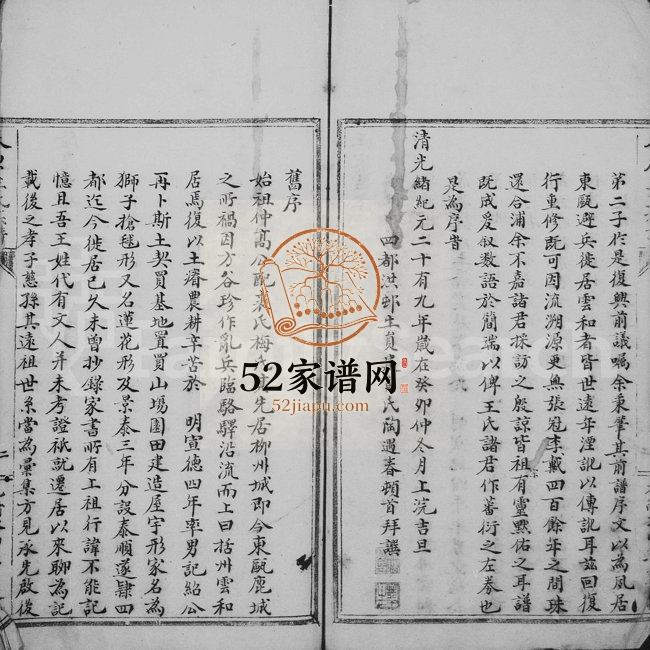 第二子於是復興前議囑余秉筆其前譜序文以為風居
東甌避兵徙居雲和者皆世遠年湮訛以傳訛耳茲回復
行重修既可因流溯源更無張冠李戴四百餘年之間珠
還合浦余不嘉諸君採訪之殷諒皆祖有靈默佑之耳譜
既成爰叙數語於簡端以俾王氏諸君作蕃衍之左券也
是為序旹
清光緒紀元二十有九年歲在癸卯仲冬月上浣吉旦
四都洪邨生員 氏陶遇春頓首拜譔
舊序
始祖仲高公配 氏梅 先居柳州城即今東甌鹿城
之所禍因方谷珍作亂兵臨駱驛沿流而上曰括州雲和
居焉復以土瘠農耕辛苦於 明宣德四年率男記紹公
再卜斯土契買基地置買山場園田建造屋宇形家名為
獅子搶毬形又名蓮花形及景泰三年分設泰順遂肆四
都迄今徙居已久未曾抄錄家書所有上祖行諱不能記
憶且吾王姓代有文人并未考證祇就遷居以來聊為記
載後之孝子慈孫其遠祖世系當為彙集方見承先啟後
52家谱网
52jiapu.com